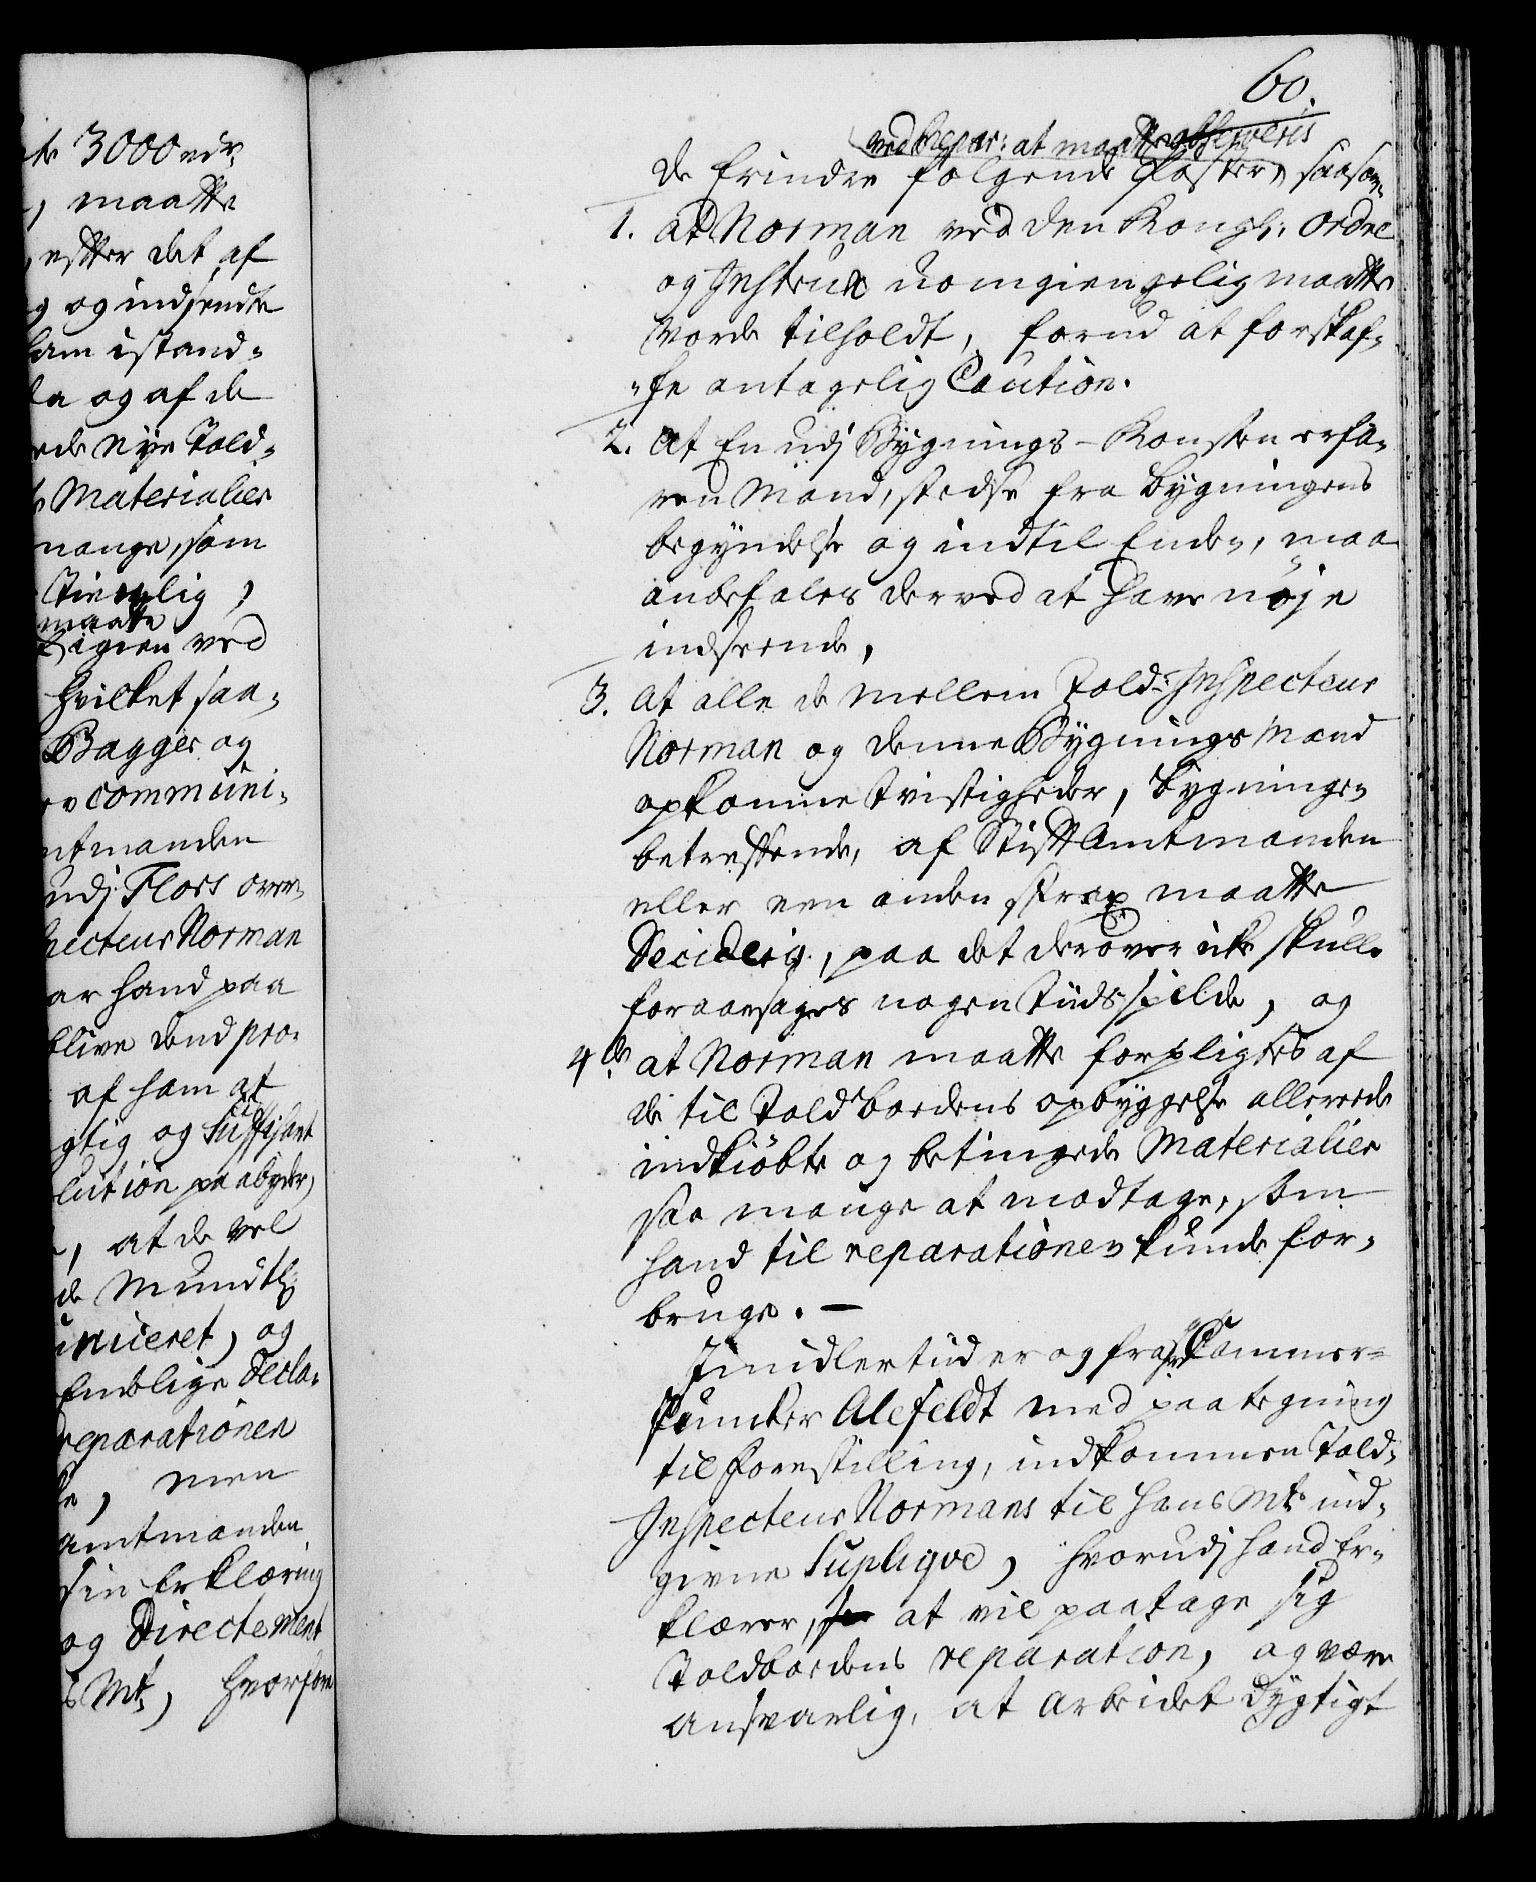 te 3000 rdr.
, maatte
efter det af
g og indsendte
ham istand-
la og af de
ede Nye Told-
Materialier
mange, som
Tienlig,
maatte
igien ved
hvilket saa-
Bagger og
communi-
mtmanden
udj Flors over
pecteur Norman
ar hand paa
blive dend pro-
af ham at
gtig og Suffisant
lution paabyder,
, at de vel
de Mundtl:
uniceret, og
Endelige Decla-
reparationen
, men
amtmanden
sin Erklæring
og Directement
s Mt, hvorfore
60.
ved Repar: at maatte observeres
de Erindre følgende Poster, saasom
1. at Norman ved den Kongl: Ordre
og Instrux uomgiengelig maatte
vorde tilholdt, forud at forskaf-
fe antagelig Caution.
2. at En udj Bygnings-Konsten erfa-
ren Mand, stedse fra Bygningens
begyndelse og indtil Enden, maa
anbefales derved at have nøje
indseende,
3. at alle de mellem Told-Inspecteur
Norman og denne Bygnings Mand
opkomne Tvistigheder, bygningen
betreffende, af Stiftamtmanden
eller een anden strax maatte
Decideris, paa det derover icke skulle
foraarsages nogen Tiids spilde, og
4de at Norman maatte forpligtes af
de til Toldbodens opbyggelse allereede
indkiöbte og betingede Materialier
saa mange at modtage, som
hand til reparationen kunde for-
bruge. —
Jmidlertiid er og fra Kammer-
Juncker Alefeldt med paategning
til forestilling, indkommen Told-
Inspecteur Normans til Hans Mts ind-
givne Supliqve, hvorudj hand Er-
klærer, at vil paatage sig
Toldbodens reparation, og være
ansvarlig, at Arbeidet dygtigt